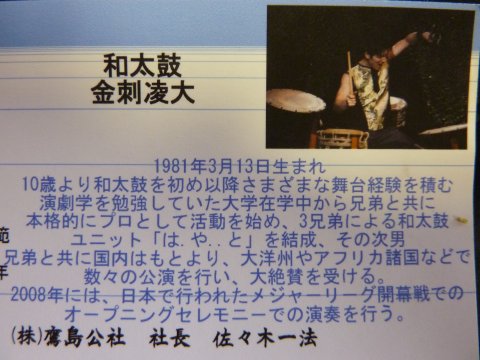 和太鼓
金刺凌大
1981年3月13日生まれ
10歳より和太鼓を初め以降さまざまな舞台経験を積む
演劇学を勉強していた大学在学中から兄弟と共に
本格的にプロとして活動を始め、3兄弟による和太鼓
ユニット「は.や..と」を結成、その次男
兄弟と共に国内はもとより、大洋州やアフリカ諸国などで
数々の公演を行い、大絶賛を受ける。
2008年には、日本で行われたメジャーリーグ開幕戦での
オープニングセレモニーでの演奏を行う。
範
年
(株)鷹島公社 社長 佐々木一法